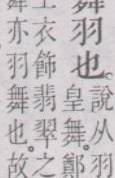 舞羽也。
說从羽
皇舞。鄭
上衣飾翡翠之
舞亦羽舞也。故